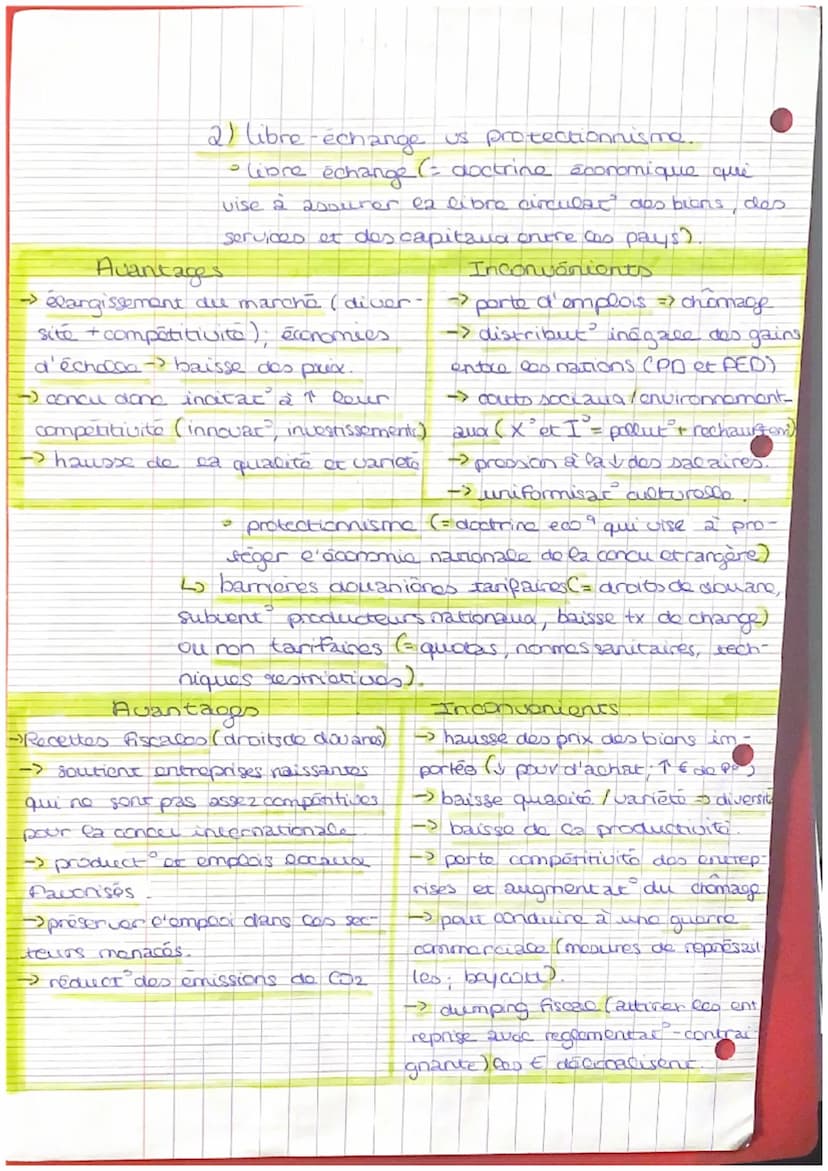 2) libre-échange vs protectionnisme.
° libre échange (= doctrine économique qui
vise à assurer la libre circulat° des biens, des
services et des capitaux entre les pays).
Avantages
→ élargissement du marché (diver-
sité + compétitivité); économies
d'échelle → baisse des prix.
→ concu donc incitat° à ↑ leur
compétitivité (innovat°, investissements)
→ hausse de la qualité et variété
Inconvénients
→ perte d'emplois => chômage
→ distribut° inégale des gains
entre les nations (PD et PED)
→ coûts sociaux/environnement-
aux (X° et I° = pollut° + rechauffem)
→ pression à la ↓ des salaires.
→ uniformisat° culturelle.
° protectionnisme (= doctrine eco q qui vise à pro-
téger l'économie nationale de la concu etrangère)
↳ barrières douanières tarifaires (= droits de douane,
subvent° producteurs nationaux, baisse tx de change)
ou non tarifaires (= quotas, normes sanitaires, tech-
niques restrictives).
Avantages
→ Recettes fiscales (droits de douanes)
→ soutient entreprises naissantes
qui ne sont pas assez compétitives
pour la concu internationale
→ product° et emplois locaux
favorisés.
→ préserver l'emploi dans les sec-
teurs menacés.
→ réduct° des émissions de CO2
Inconvénients
→ hausse des prix des biens im-
portés (↓ pouv d'achat; ↑ € de
→ baisse qualité/variété => diversité
→ baisse de la productivité.
→ perte compétitivité des entrep-
rises et augmentat° du chômage
→ peut conduire à une guerre
commerciale (mesures de représail
les; boycott).
→ dumping fiscal (attirer les ent
reprise avec reglementat° - contrai
gnante) les € délocalisent.